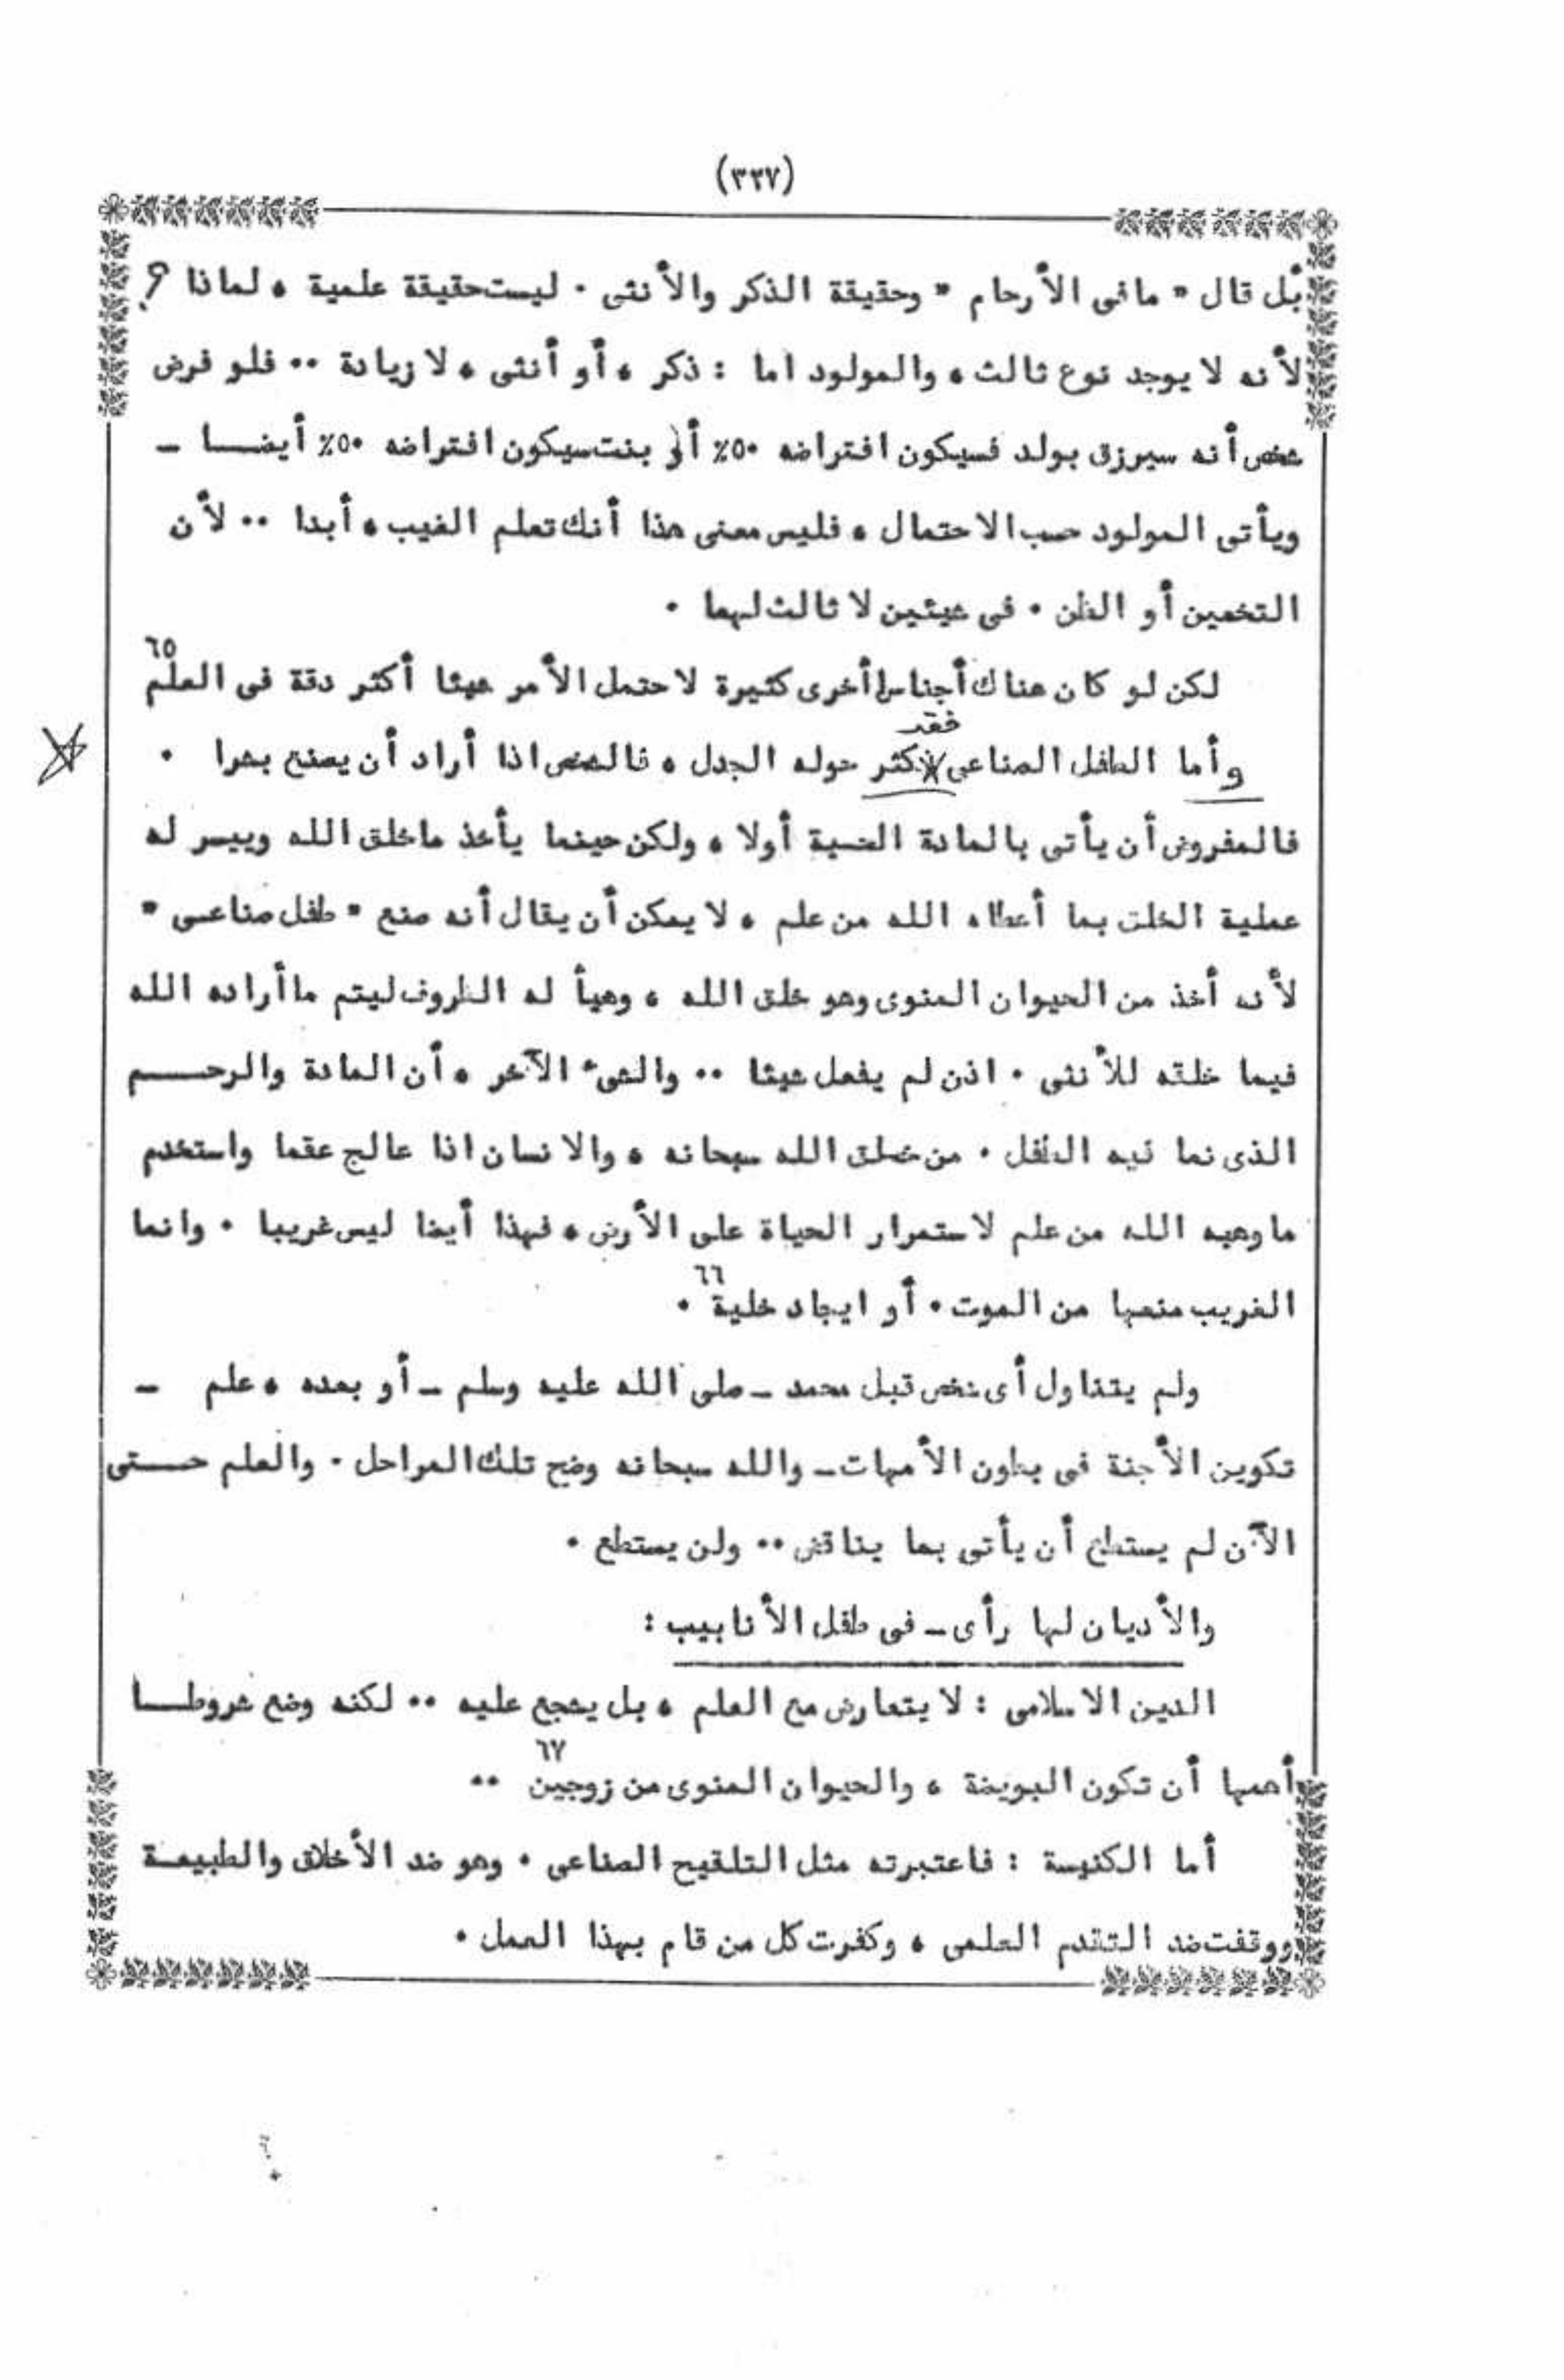 (٣٣٧)
بل قال " مافى الأرحام " وحقيقة الذكر والأنثى ٠ ليست حقيقة علمية ، لماذا ؟
لأنه لا يوجد نوع ثالث ، والمولود اما : ذكر ، أو أنثى ، لا زيادة ٠٠ فلو فرض
شخص أنه سيرزق بولد فسيكون افتراضه ٥٠٪ أو بنت سيكون افتراضه ٥٠٪ أيضــا ـ
ويأتى المولود حسب الاحتمال ، فليس معنى هذا أنك تعلم الغيب ، أبدا ٠٠ لأن
التخمين أو الظن ٠ فى شيئين لا ثالث لهما ٠
لكن لو كان هناك أجناس أخرى كثيرة لاحتمل الأمر شيئا أكثر دقة فى العلم ٦٥
فقد
وأما الطفل الصناعى كثر حوله الجدل ، فالشخص اذا أراد أن يصنع بشرا ٠
فالمفروض أن يأتى بالمادة الخسبة أولا ، ولكن حينما يأخذ ماخلق الله وييسر له
عملية الخلق بما أعطاه الله من علم ، لا يمكن أن يقال أنه صنع " طفل صناعـى "
لأنه أخذ من الحيوان المنوى وهو خلق الله ، وهيأ له الظروف ليتم ماأراده الله
فيما خلقه للأنثى ٠ اذن لم يفعل شيئا ٠٠ والشىء الآخر ، أن المادة والرحــم
الذى نما فيه الطفل ٠ من خلق الله سبحانه ، والانسان اذا عالج عقما واستخدم
ماوهبه الله من علم لاستمرار الحياة على الأرض ، فهذا أيضا ليس غريبا ٠ وانما
الغريب منعها من الموت ٠ أو ايجاد خلية ٦٦ ٠
ولم يتناول أى شخص قبل محمد ـ صلى الله عليه وسلم ـ أو بعده ، علم ـ
تكوين الأجنة فى بطون الأمهات ـ والله سبحانه وضح تلك المراحل ٠ والعلم حــتى
الآن لم يستطع أن يأتى بما يناقض ٠٠ ولن يستطع ٠
والأديان لها رأى ـ فى طفل الأنابيب :
الدين الاسلامى : لا يتعارض مع العلم ، بل يشجع عليه ٠٠ لكنه وضع شروطــا
أهمها أن تكون البويضة ، والحيوان المنوى من زوجين ٦٧ ٠٠
أما الكنيسة : فاعتبرته مثل التلقيح الصناعى ٠ وهو ضد الأخلاق والطبيعـة
ووقفت ضد التقدم العلمى ، وكفرت كل من قام بهذا العمل ٠